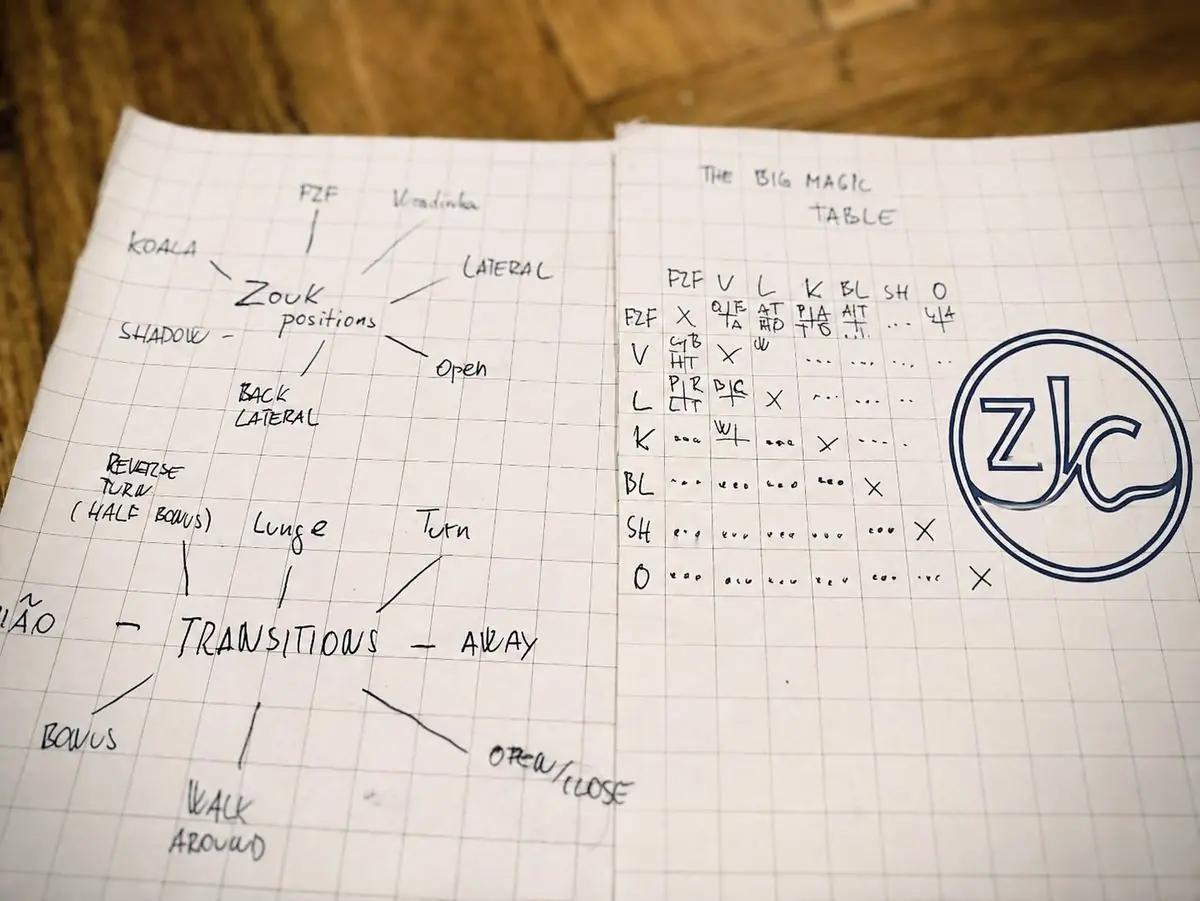 FZF
KOALA
LATERAL
ZOUK
positions
SHADOW -
Open
BACK
LATERAL
REVERSE
TURN
(HALF BONUS)
Lunge
Turn
ÃO - TRANSITIONS - AWAY
BONUS
OPEN/CLOSE
WALK
AROUND
THE BIG MAGIC
TABLE
FZF V L K BL SH O
FZF X ...
V X .... .... ... ..
L X ... ... ..
K ... ... X .... .
BL ... ... ... ... X
SH ... ... ... ... ... X
O ... ... ... ... ... ... X
zjc